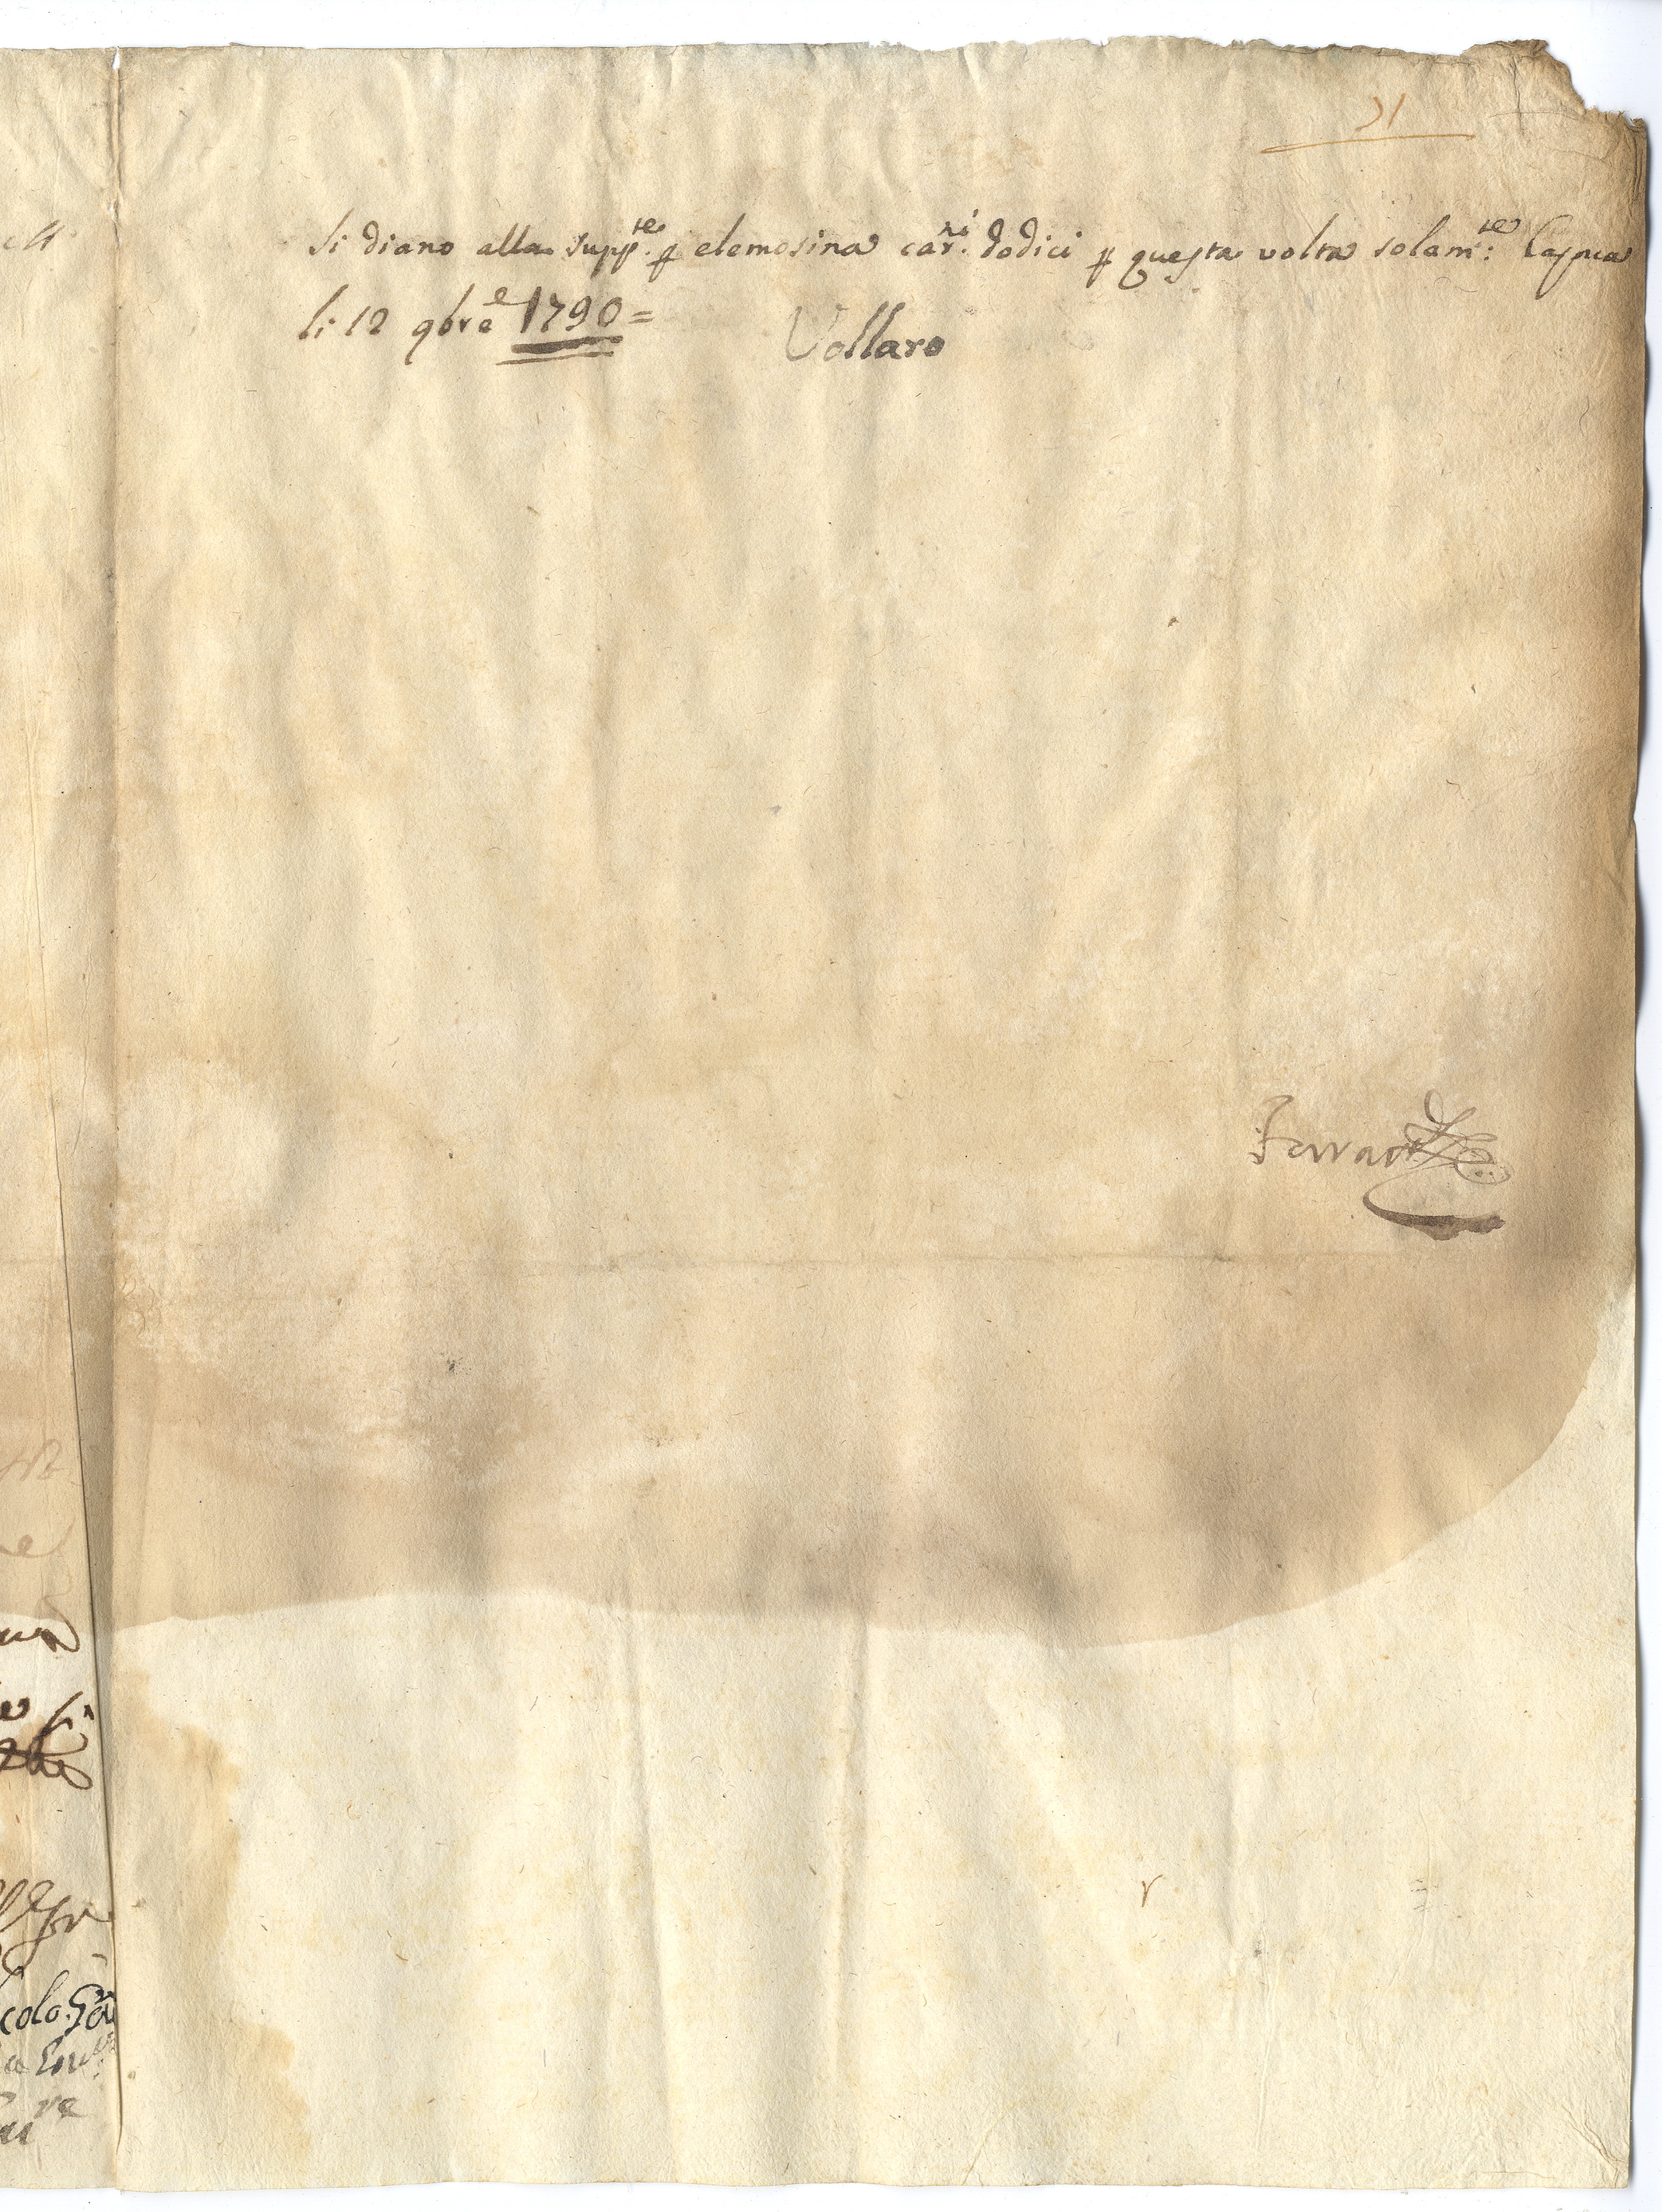 21
Si diano alla supp.te p elemosina car.ni dodici p questa volta solam.te: Capua
li 12 9bre 1790 =
Vollaro